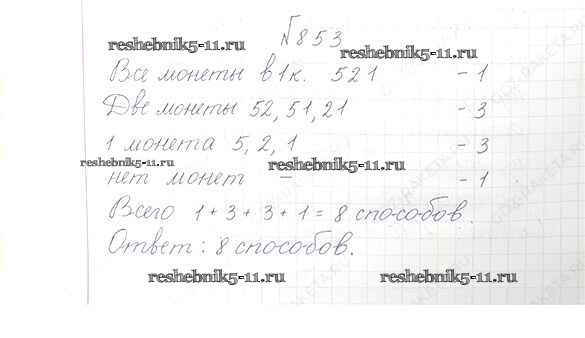 №853
reshebnik5-11.ru
reshebnik5-11.ru
Все монеты в 1к. 521 - 1
Две монеты 52, 51, 21 - 3
1 монета 5, 2, 1 - 3
reshebnik5-11.ru
reshebnik5-11.ru
нет монет — - 1
Всего 1 + 3 + 3 + 1 = 8 способов.
Ответ: 8 способов.
reshebnik5-11.ru
reshebnik5-11.ru